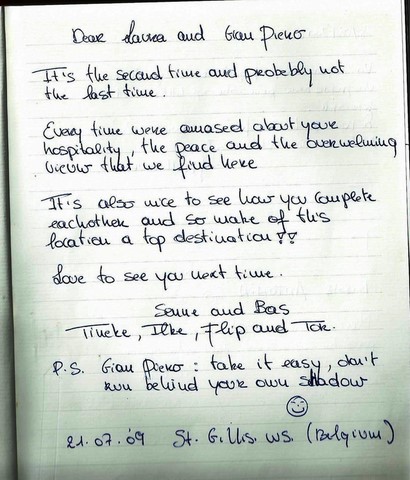 Dear Laura and Gian Piero
It's the second time and probebly not
the last time.
Every time were amased about your
hospitality, the peace and the overwelming
vieuw that we find here
It's also nice to see how you complete
eachother and so make of this
location a top destination!!
Love to see you next time.
Senne and Bas
Tineke, Ilke, Flip and Tok.
P.S. Gian Piero : take it easy, don't
run behind your own shadow
21.07.'09 St. Gillis. WS. (Belgium)